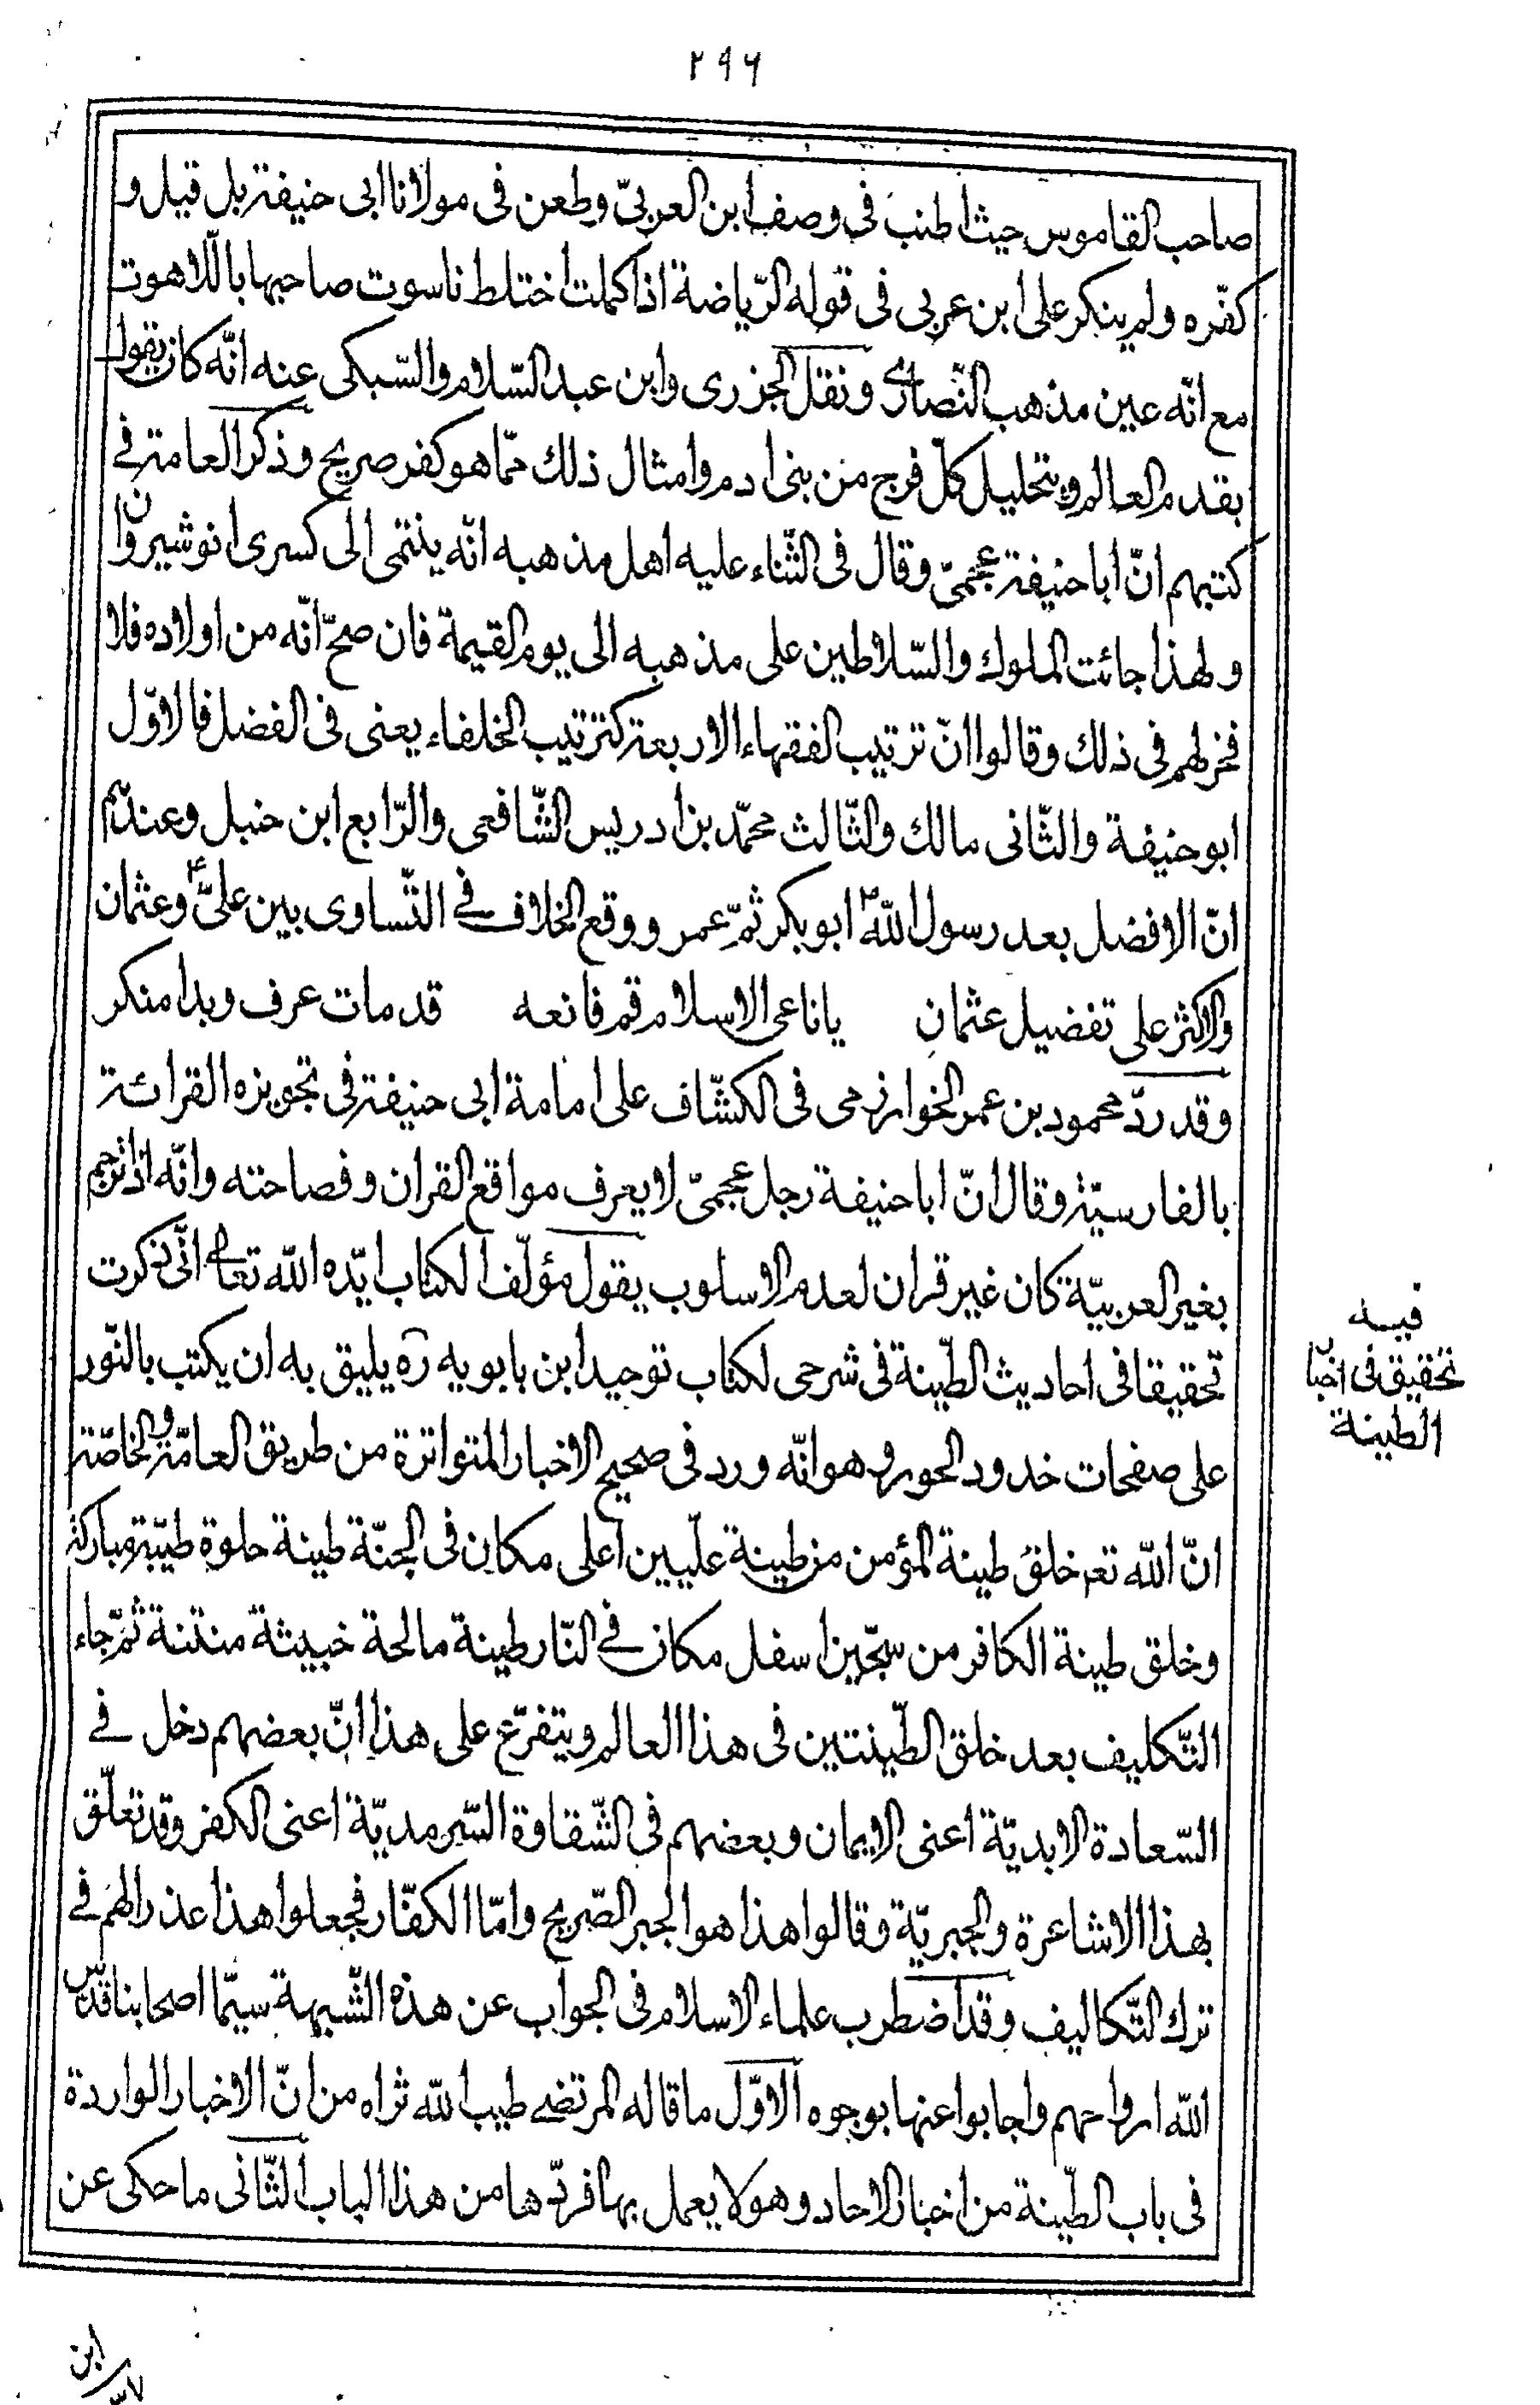 ٢٩۶
صاحب القاموس حيث اطنب فى وصف ابن العربىّ وطعن فى مولانا ابى حنيفة بل قيل و
كفّره ولم ينكر على ابن عربى فى قوله الرّياضة اذا كملت اختلط ناسوت صاحبها باللّاهوت
مع انّه عين مذهب النّصارى ونقل الجزرى وابن عبد السّلام والسّبكى عنه انّه كان يقول
بقدم العالم وبتحليل كلّ فرج من بنى ادم وامثال ذلك ممّا هو كفر صريح وذكر العامة فى
كتبهم انّ ابا حنيفة عجمىّ وقال فى الثّناء عليه اهل مذهبه انّه ينتمى الى كسرى انوشيروان
ولهذا جائت الملوك والسّلاطين على مذهبه الى يوم القيمة فان صحّ انّه من اولاده فلا
فخر لهم فى ذلك وقالوا انّ ترتيب الفقهاء الاربعة كترتيب الخلفاء يعنى فى الفضل فالاوّل
ابو حنيفة والثّانى مالك والثّالث محمّد بن ادريس الشّافعى والرّابع ابن حنبل وعندهم
انّ الافضل بعد رسول اللّه ص ابو بكر ثمّ عمر ووقع الخلاف فى التّساوى بين علىّ ع وعثمان
والاكثر على تفضيل عثمان يا ناعى الاسلام قم فانعه قد مات عرف وبدا منكر
وقد ردّ محمود بن عمر الخوارزمى فى الكشّاف على امامة ابى حنيفة فى تجويزه القرائة
بالفارسيّة وقال انّ ابا حنيفة رجل عجمىّ لا يعرف مواقع القران وفصاحته وانّه اذا ترجم
بغير العربيّة كان غير قران لعدم الاسلوب يقول مؤلّف الكتاب ايّده اللّه تعالى انّى ذكرت
تحقيقا فى احاديث الطّينة فى شرحى لكتاب توحيد ابن بابويه ره يليق به ان يكتب بالنّور
على صفحات خدود الحور وهو انّه ورد فى صحيح الاخبار المتواترة من طريق العامّة والخاصّة
انّ اللّه تعر خلق طينة المؤمن من طينة علّيين اعلى مكان فى الجنّة طينة حلوة طيّبة مباركة
وخلق طينة الكافر من سجّين اسفل مكان فى النّار طينة مالحة خبيثة منتنة ثمّ جاء
التّكليف بعد خلق الطّينتين فى هذا العالم ويتفرّع على هذا انّ بعضهم دخل فى
السّعادة الابديّة اعنى الايمان وبعضهم فى الشّقاوة السّرمديّة اعنى الكفر وقد تعلّق
بهذا الاشاعرة والجبريّة وقالوا هذا هو الجبر الصّريح وامّا الكفّار فجعلوا هذا عذرا لهم فى
ترك التّكاليف وقد اضطرب علماء الاسلام فى الجواب عن هذه الشّبهة سيّما اصحابنا قدّس
اللّه ارواحهم واجابوا عنها بوجوه الاوّل ما قاله المرتضى طيب اللّه ثراه من انّ الاخبار الواردة
فى باب الطّينة من اخبار الاحاد وهو لا يعمل بها فردّها من هذا الباب الثّانى ما حكى عن
فيه
تحقيق فى اخبار
الطينة
ابن